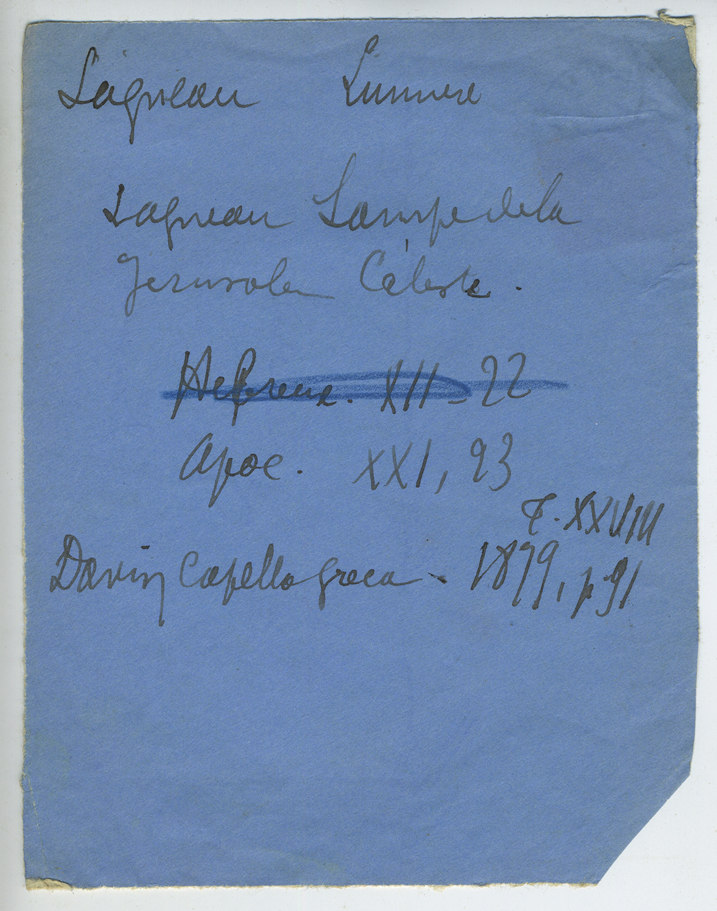 L'agneau Lumiere
L'agneau Lampe de la
Jerusalem Céleste.
Hebreux. XII - 22
Apoc. XXI, 23
T. XXVIII
Davin Capella greca - 1879, p. 91